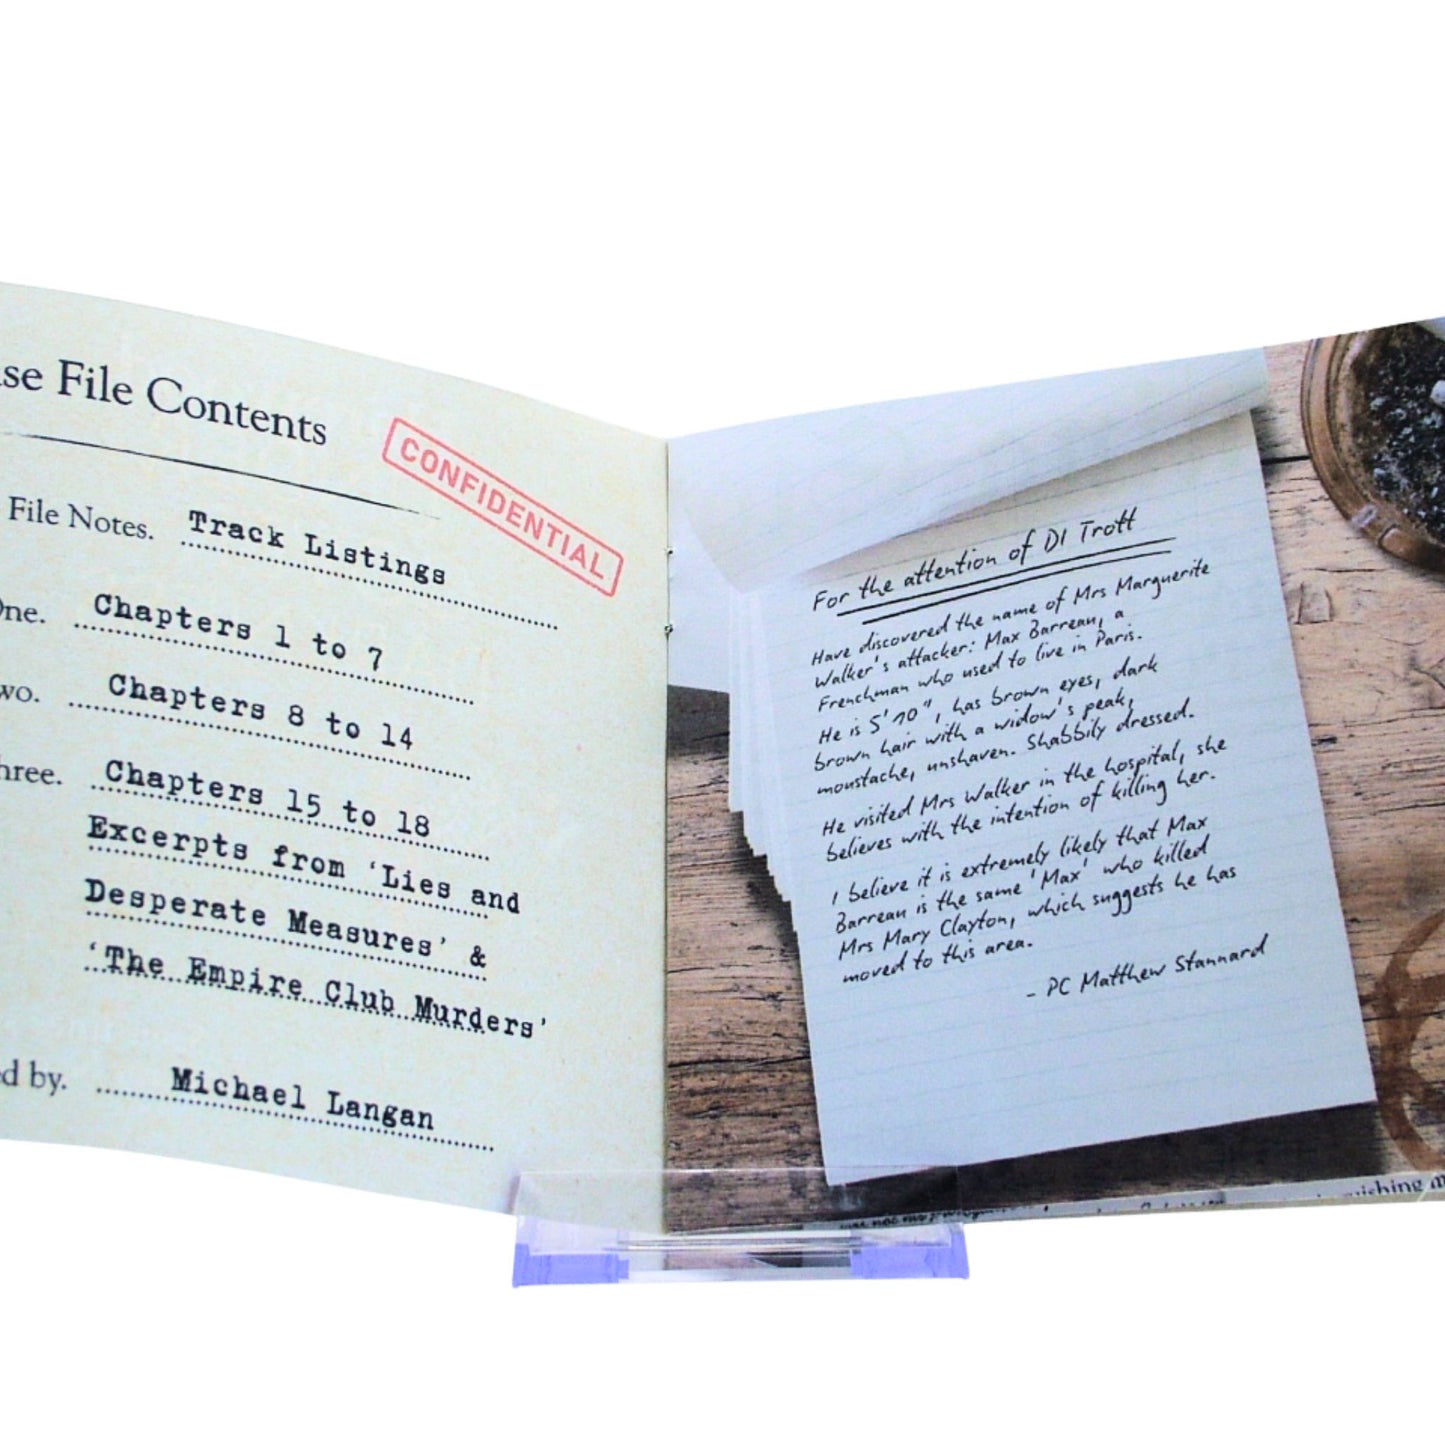 File Contents
CONFIDENTIAL
File Notes. Track Listings
One. Chapters 1 to 7
Chapters 8 to 14
Three. Chapters 15 to 18
Excerpts from ‘Lies and
Desperate Measures’ &
‘The Empire Club Murders’
by. Michael Langan
For the attention of DI Trott
Have discovered the name of Mrs Marguerite
Walker's attacker: Max Barreau, a
Frenchman who used to live in Paris.
He is 5'10", has brown eyes, dark
brown hair with a widow's peak,
moustache, unshaven. Shabbily dressed.
He visited Mrs Walker in the hospital, she
believes with the intention of killing her.
I believe it is extremely likely that Max
Barreau is the same 'Max' who killed
Mrs Mary Clayton, which suggests he has
moved to this area.
- PC Matthew Stannard